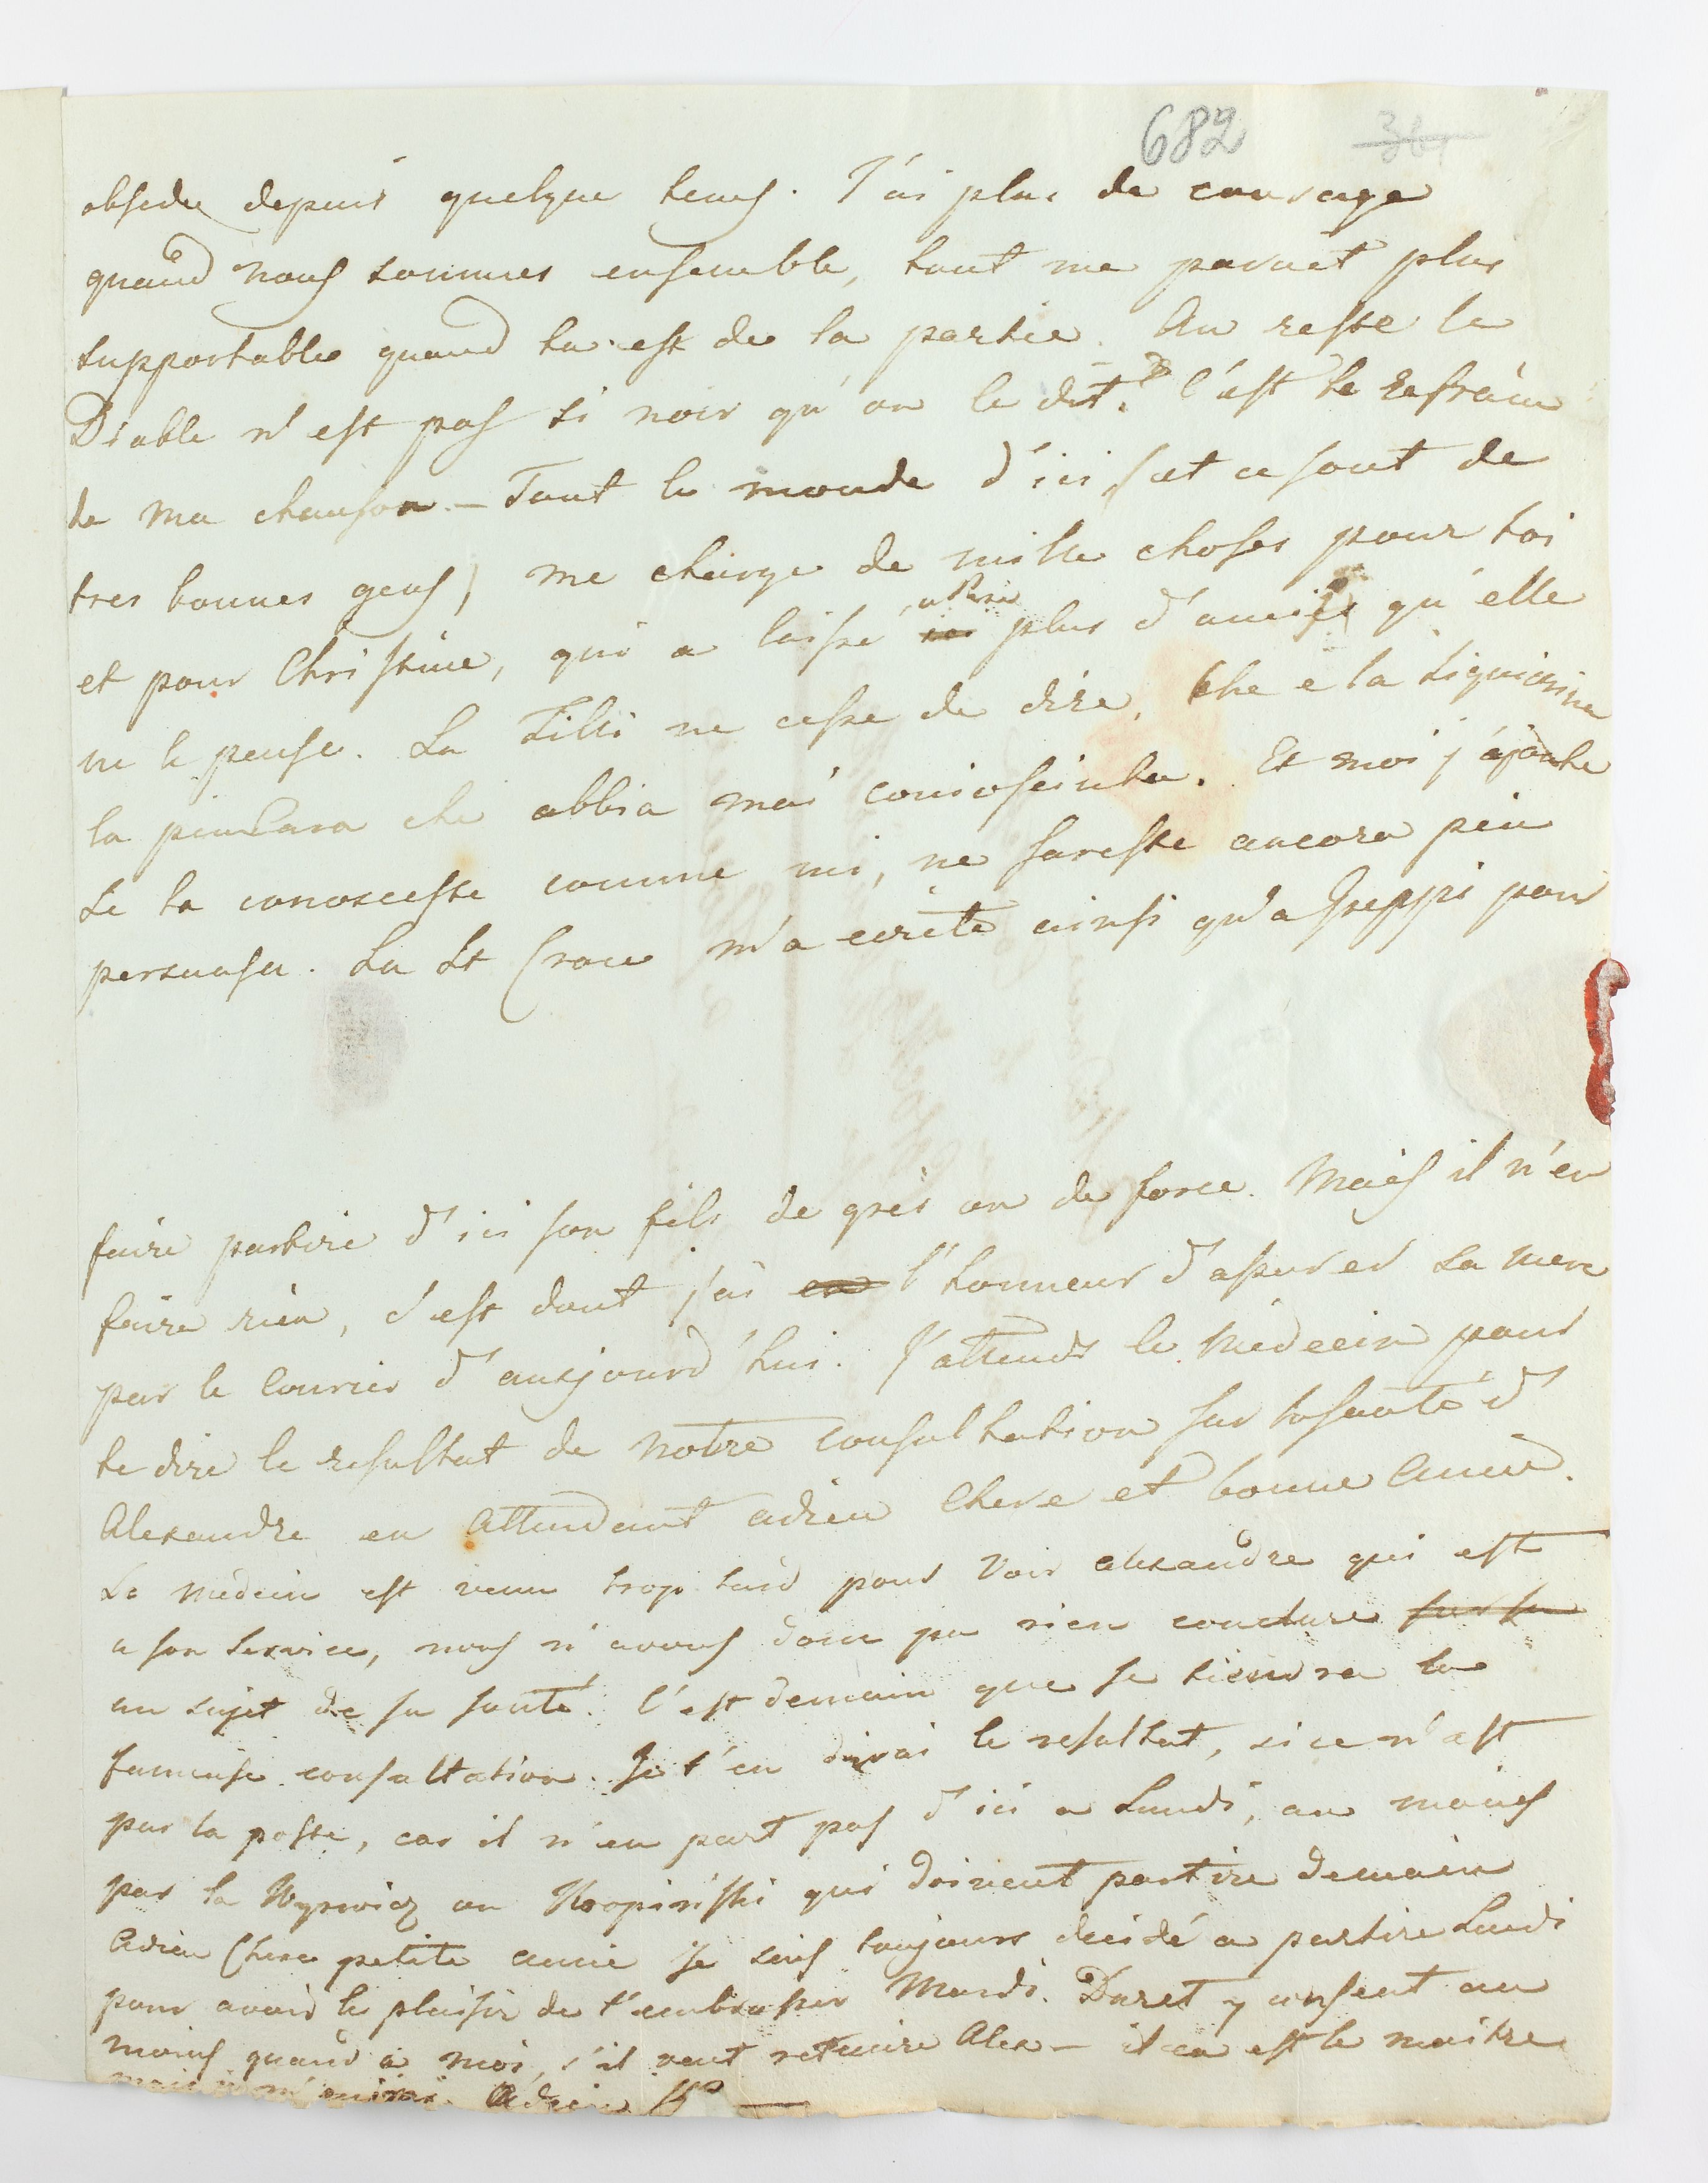 682 361
obsedee depuis quelque tems. J'ai plus de courage
quand nous sommes ensemble, tout me paroit plus
supportable quand tu est de la partie. Au reste le
Diable n'est pas si noir qu'on le dit. C'est le Refrain
de ma chanson. — Tout le monde d'ici (et ce sont de
tres bonnes gens) me charge de mille choses pour toi
et pour Christine, qui a laissé a Paris plus d'amies qu'elle
ne le pense. La Lilli ne cesse de dire, Che e la Signiorina
la piu cara che abbia mai coniosciuta. Et moi j'ajoute
Se la conoscesse comme mi, ne saresse ancora piu
persuasa. La St Croce m'a ecrite ainsi qu'a Greppi pour
faire partire d'ici son fils de gres ou de force. Mais il n'en
faire rien, c'est dont j'ai l'honneur d'assurer sa mere
par le Courier d'aujourd'hui. J'attends le Medecin pour
te dire le resultat de notre consultation sur la santé d'
Alexandre en attendant adieu Chere et bonne Amie.
Le Medecin est venu trop tard pour voir alexandre qui est
a son service, nous n'avons donc pu rien conclure sur sa
au sujet de sa santé. C'est demain que se tiendra la
fameuse consultation. Je t'en dirai le resultat, si ce n'est
par la poste, car il n'en part pas d'ici a Lundi, au moins
par la Wyrwicz ou Kropinski qui doivent partire demain
Adieu Chere petite amie Je suis toujours decidé a partire Lundi
pour avoir le plaisir de t'embrasser Mardi. Duret y consent au
moins quand a moi, s'il veut retenire Alex — il en est le maitre
mais je m'enirai. Adieu